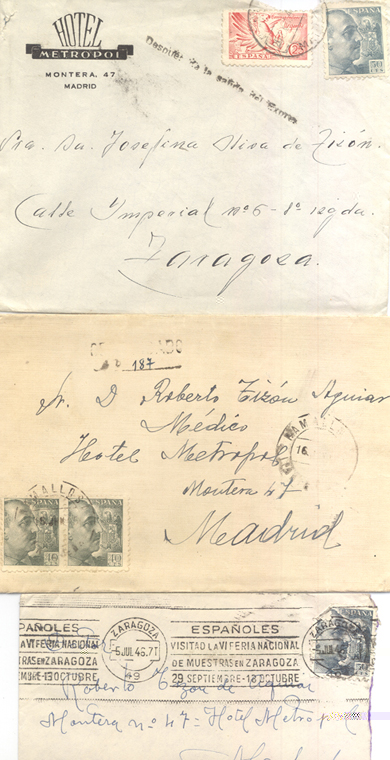 HOTEL
METROPOL
MONTERA, 47
MADRID
Después de la salida del Correo
ESPAÑA
50
Sra. Da. Josefina Oliva de Tizón.
Calle Imperial nº 6 - 1º izqda.
Zaragoza.
187
Sr. D Roberto Tizón Aguiar
Médico
Hotel Metropol
Montera 47
Madrid
MALLO
16.
ESPAÑA
ESPAÑA
40
40
ZARAGOZA
-5 JUL 46.7T
PAÑOLES
A VI FERIA NACIONAL
TRAS EN ZARAGOZA
EMBRE-13 OCTUBRE
ESPAÑOLES
VISITAD LA VI FERIA NACIONAL
DE MUESTRAS EN ZARAGOZA
29 SEPTIEMBRE-13 OCTUBRE
ZARAGOZA
JUL 46
50
Roberto Tizón de Aguiar
Montera nº 47 = Hotel Metropol
Madrid